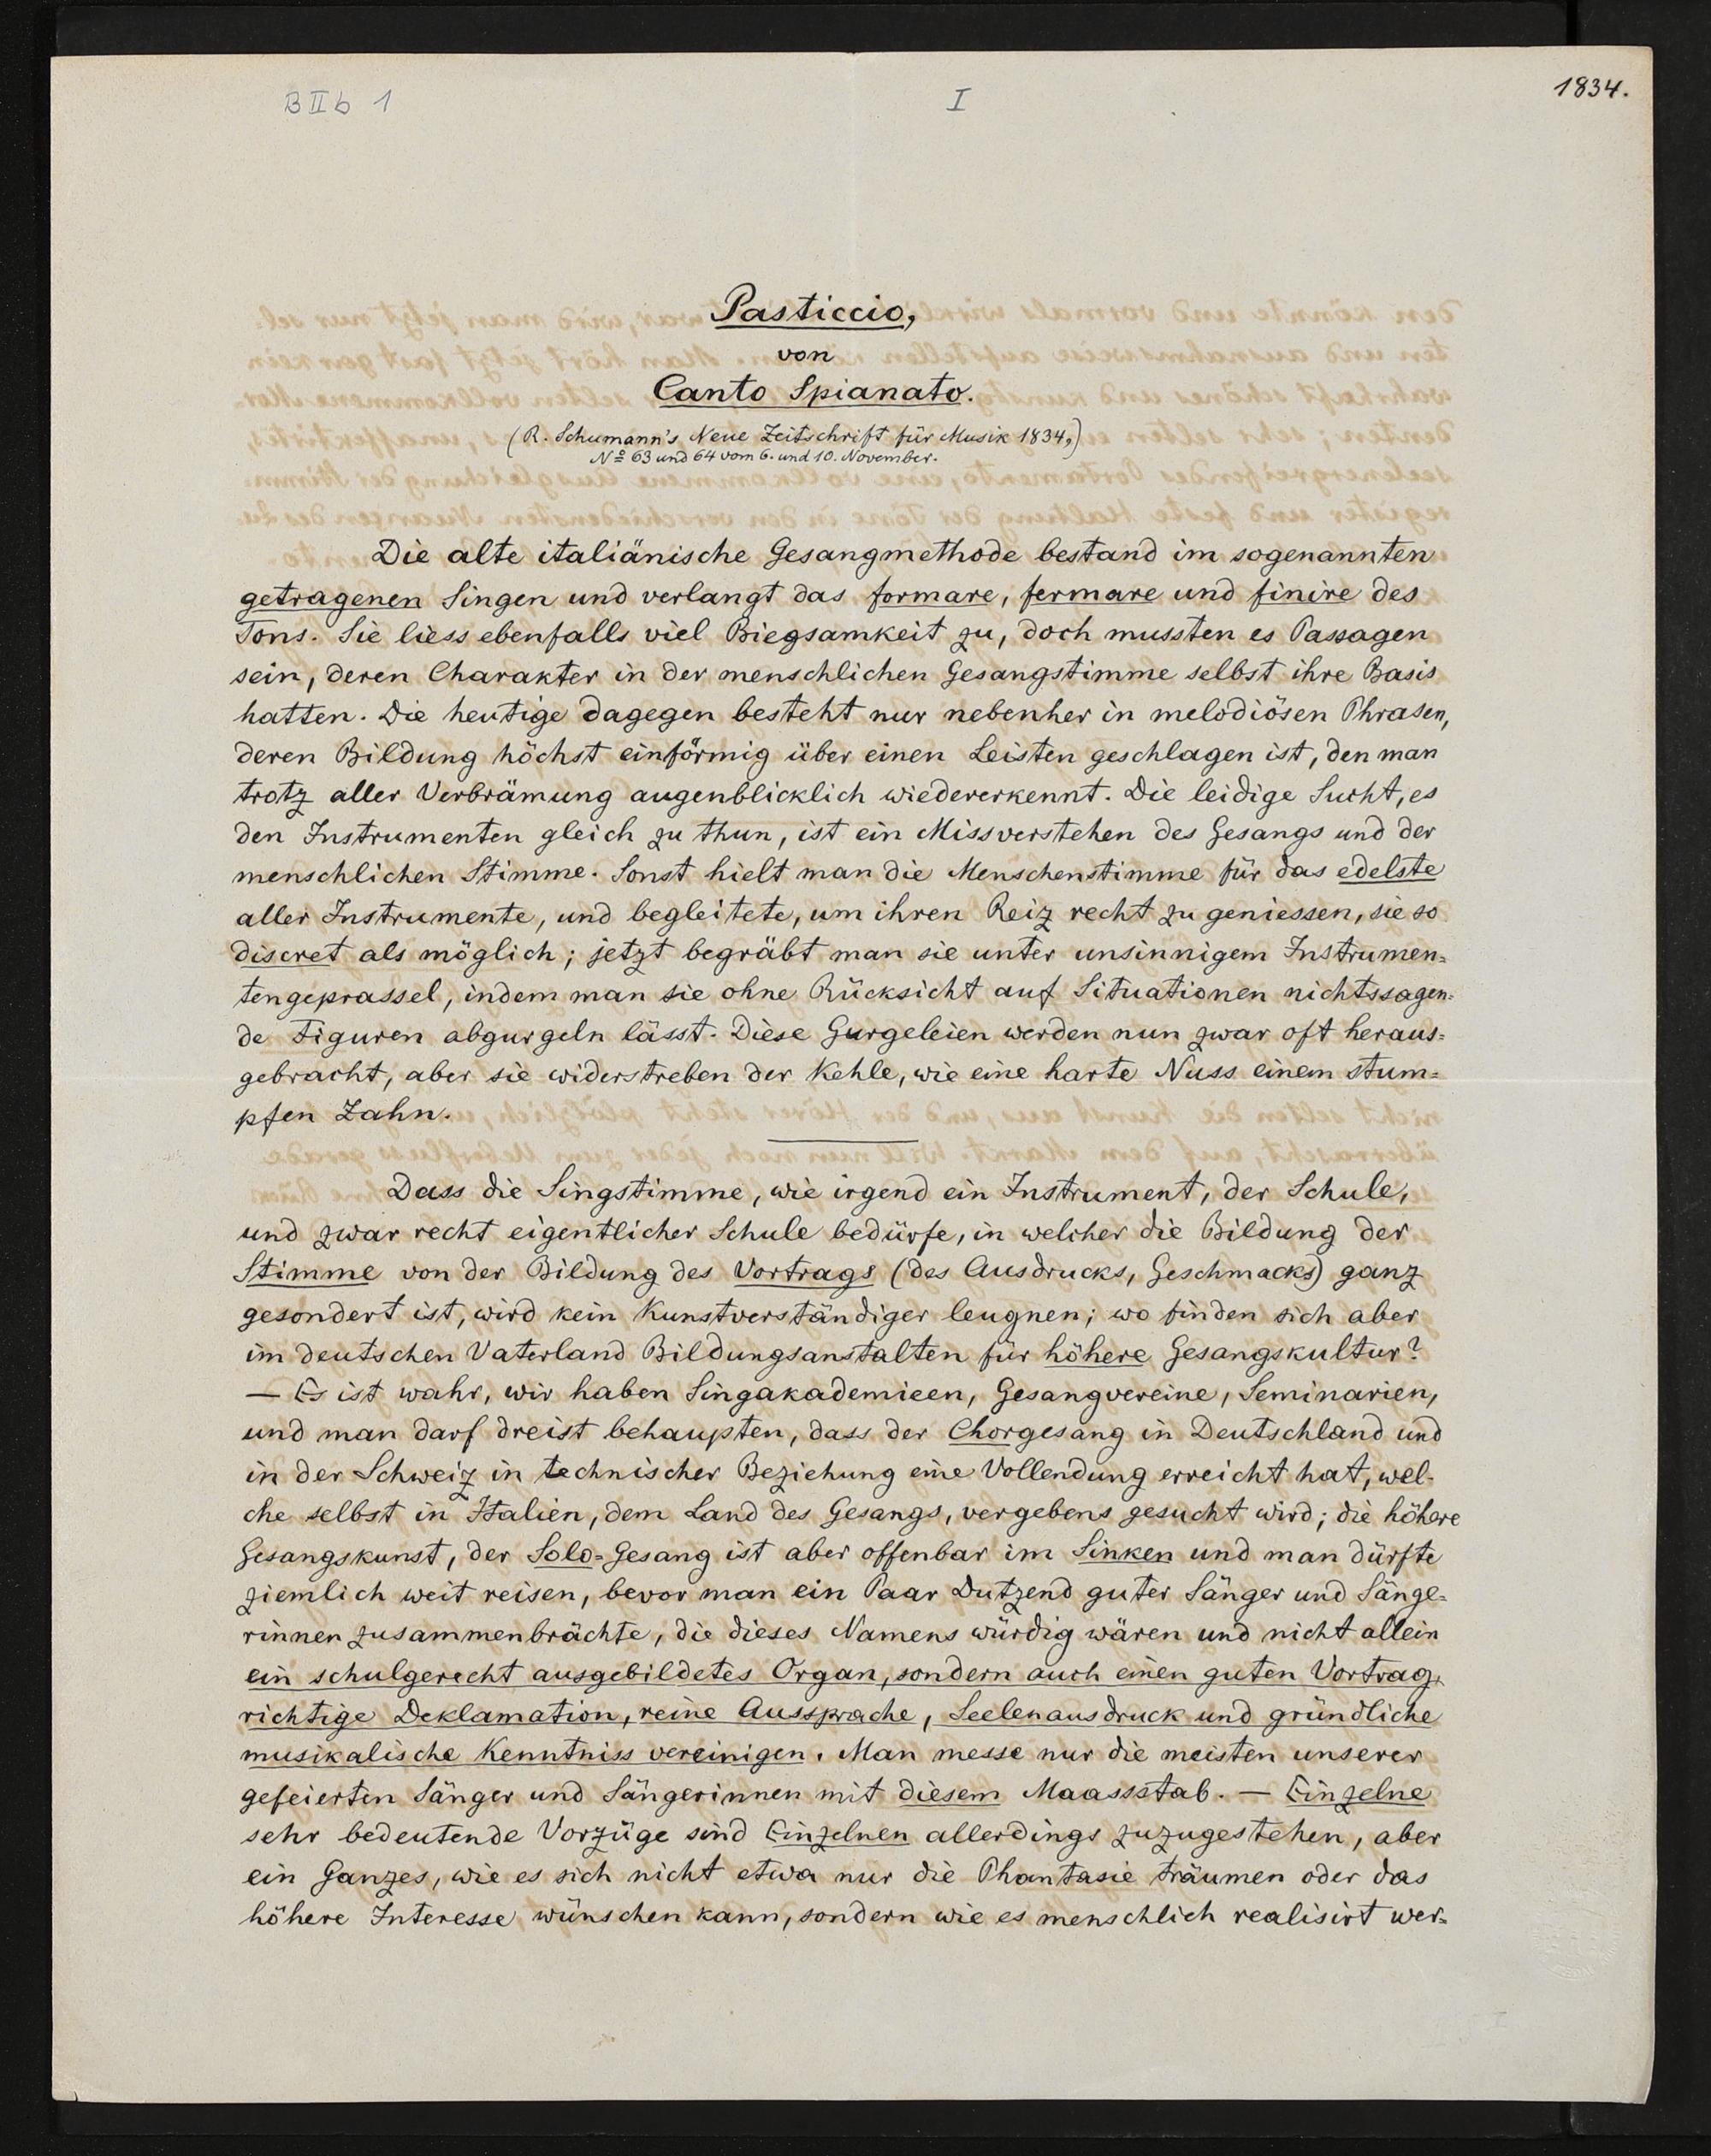 B II b 1
I
1834.
Pasticcio,
von
Canto Spianato.
(R. Schumann's Neue Zeitschrift für Musik 1834,)
Nº 63 und 64 vom 6. und 10. November.
Die alte italiänische Gesangmethode bestand im sogenannten
getragenen Singen und verlangt das formare, fermare und finire des
Tons. Sie liess ebenfalls viel Biegsamkeit zu, doch mussten es Passagen
sein, deren Charakter in der menschlichen Gesangstimme selbst ihre Basis
hatten. Die heutige dagegen besteht nur nebenher in melodiösen Phrasen,
deren Bildung höchst einförmig über einen Leisten geschlagen ist, den man
trotz aller Verbrämung augenblicklich wiedererkennt. Die leidige Sucht, es
den Instrumenten gleich zu thun, ist ein Missverstehen des Gesangs und der
menschlichen Stimme. Sonst hielt man die Menschenstimme für das edelste
aller Instrumente, und begleitete, um ihren Reiz recht zu geniessen, sie so
discret als möglich; jetzt begräbt man sie unter unsinnigem Instrumen=
tengeprassel, indem man sie ohne Rücksicht auf Situationen nichtssagen=
de Figuren abgurgeln lässt. Diese Gurgeleien werden nun zwar oft heraus=
gebracht, aber sie widerstreben der Kehle, wie eine harte Nuss einem stum=
pfen Zahn.
Dass die Singstimme, wie irgend ein Instrument, der Schule,
und zwar recht eigentlicher Schule bedürfe, in welcher die Bildung der
Stimme von der Bildung des Vortrags (des Ausdrucks, Geschmacks) ganz
gesondert ist, wird kein Kunstverständiger leugnen; wo finden sich aber
im deutschen Vaterland Bildungsanstalten für höhere Gesangskultur?
— Es ist wahr, wir haben Singakademieen, Gesangvereine, Seminarien,
und man darf dreist behaupten, dass der Chorgesang in Deutschland und
in der Schweiz in technischer Beziehung eine Vollendung erreicht hat, wel-
che selbst in Italien, dem Land des Gesangs, vergebens gesucht wird; die höhere
Gesangskunst, der Solo=Gesang ist aber offenbar im Sinken und man dürfte
ziemlich weit reisen, bevor man ein Paar Dutzend guter Sänger und Sänge=
rinnen zusammenbrächte, die dieses Namens würdig wären und nicht allein
ein schulgerecht ausgebildetes Organ, sondern auch einen guten Vortrag,
richtige Deklamation, reine Aussprache, Seelenausdruck und gründliche
musikalische Kenntniss vereinigen. Man messe nur die meisten unserer
gefeierten Sänger und Sängerinnen mit diesem Maassstab. — Einzelne
sehr bedeutende Vorzüge sind Einzelnen allerdings zuzugestehen, aber
ein Ganzes, wie es sich nicht etwa nur die Phantasie träumen oder das
höhere Interesse wünschen kann, sondern wie es menschlich realisirt wer=